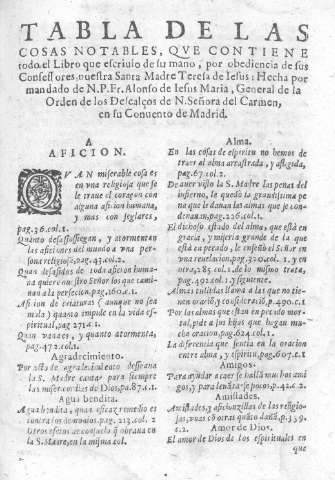 TABLA DE LAS
COSAS NOTABLES, QVE CONTIENE
todo el Libro que escriuio de su mano, por obediencia de sus
Confessores, nuestra Santa Madre Teresa de Iesus: Hecha por
mandado de N.P.Fr. Alonso de Iesus Maria, General de la
Orden de los Descalços de N. Señora del Carmen,
en su Conuento de Madrid.
A
AFICION.
QVAN miserable cosa es
en vna religiosa que se
le trate el coraçon con
alguna aficion humana,
y mas con seglares,
pag.36.col.1.
Quanto desassossiegan, y atormentan
las aficiones del mundo a vna per-
sona religiosa, pag.43.col.2.
Quan desasidos de toda aficion huma-
na quiere nuestro Señor los que cami-
nan a la perfeccion, pag.160.c.1.
Aficion de criaturas (aunque no sea
mala) quanto impide en la vida es-
piritual, pag 271.c.1.
Quan vana es, y quanto atormenta,
pag.472.col.2.
Agradecimiento.
Por acto de agradecimiento desseaua
la S. Madre cantar para siempre
las misericordias de Dios, pa.87.c.1.
Agua bendita.
Agua bendita, quan eficaz remedio es
contra los demonios, pag. 213. col. 2
Otros efectos interiores que obraua en
la S. Madre, en la misma col.
Alma.
En las cosas de espiritu no hemos de
traer al alma arrastrada, y afligida,
pag.67.col.2.
De auer visto la S. Madre las penas del
infierno, le quedò la grauissima pe-
na que le dauan las almas que se con-
denauan, pag.226.col.1.
El dichoso estado del alma, que està en
gracia, y miseria grande de la que
està en pecado, le enseño el Señor en
vna reuelacion, pag.320.col. 1. y en
otra, 285.col.1. de lo mismo trata,
pag.492.col.1. y siguente.
Almas tullidas llama a las que no tie-
nen oracion, y consideracio, p.490.c.1
Por las almas que estan en pecado mor-
tal, pide a sus hijas que hagan mu-
cha oracion, pag.624.col.1.
La diferencia que sentia en la oracion
entre alma, y espiritu, pag.607.c.1
Amigos.
Para ayudar a caer se hallà muchos ami
gos, y para leuãtarse pocos, p.42.c.2.
Amistades.
Amistades, y aficionzillas de las religio-
sas, vnas cõ otras quãto dañã, p.339.
c.2.
Amor de Dios.
El amor de Dios de los espirituales en
que